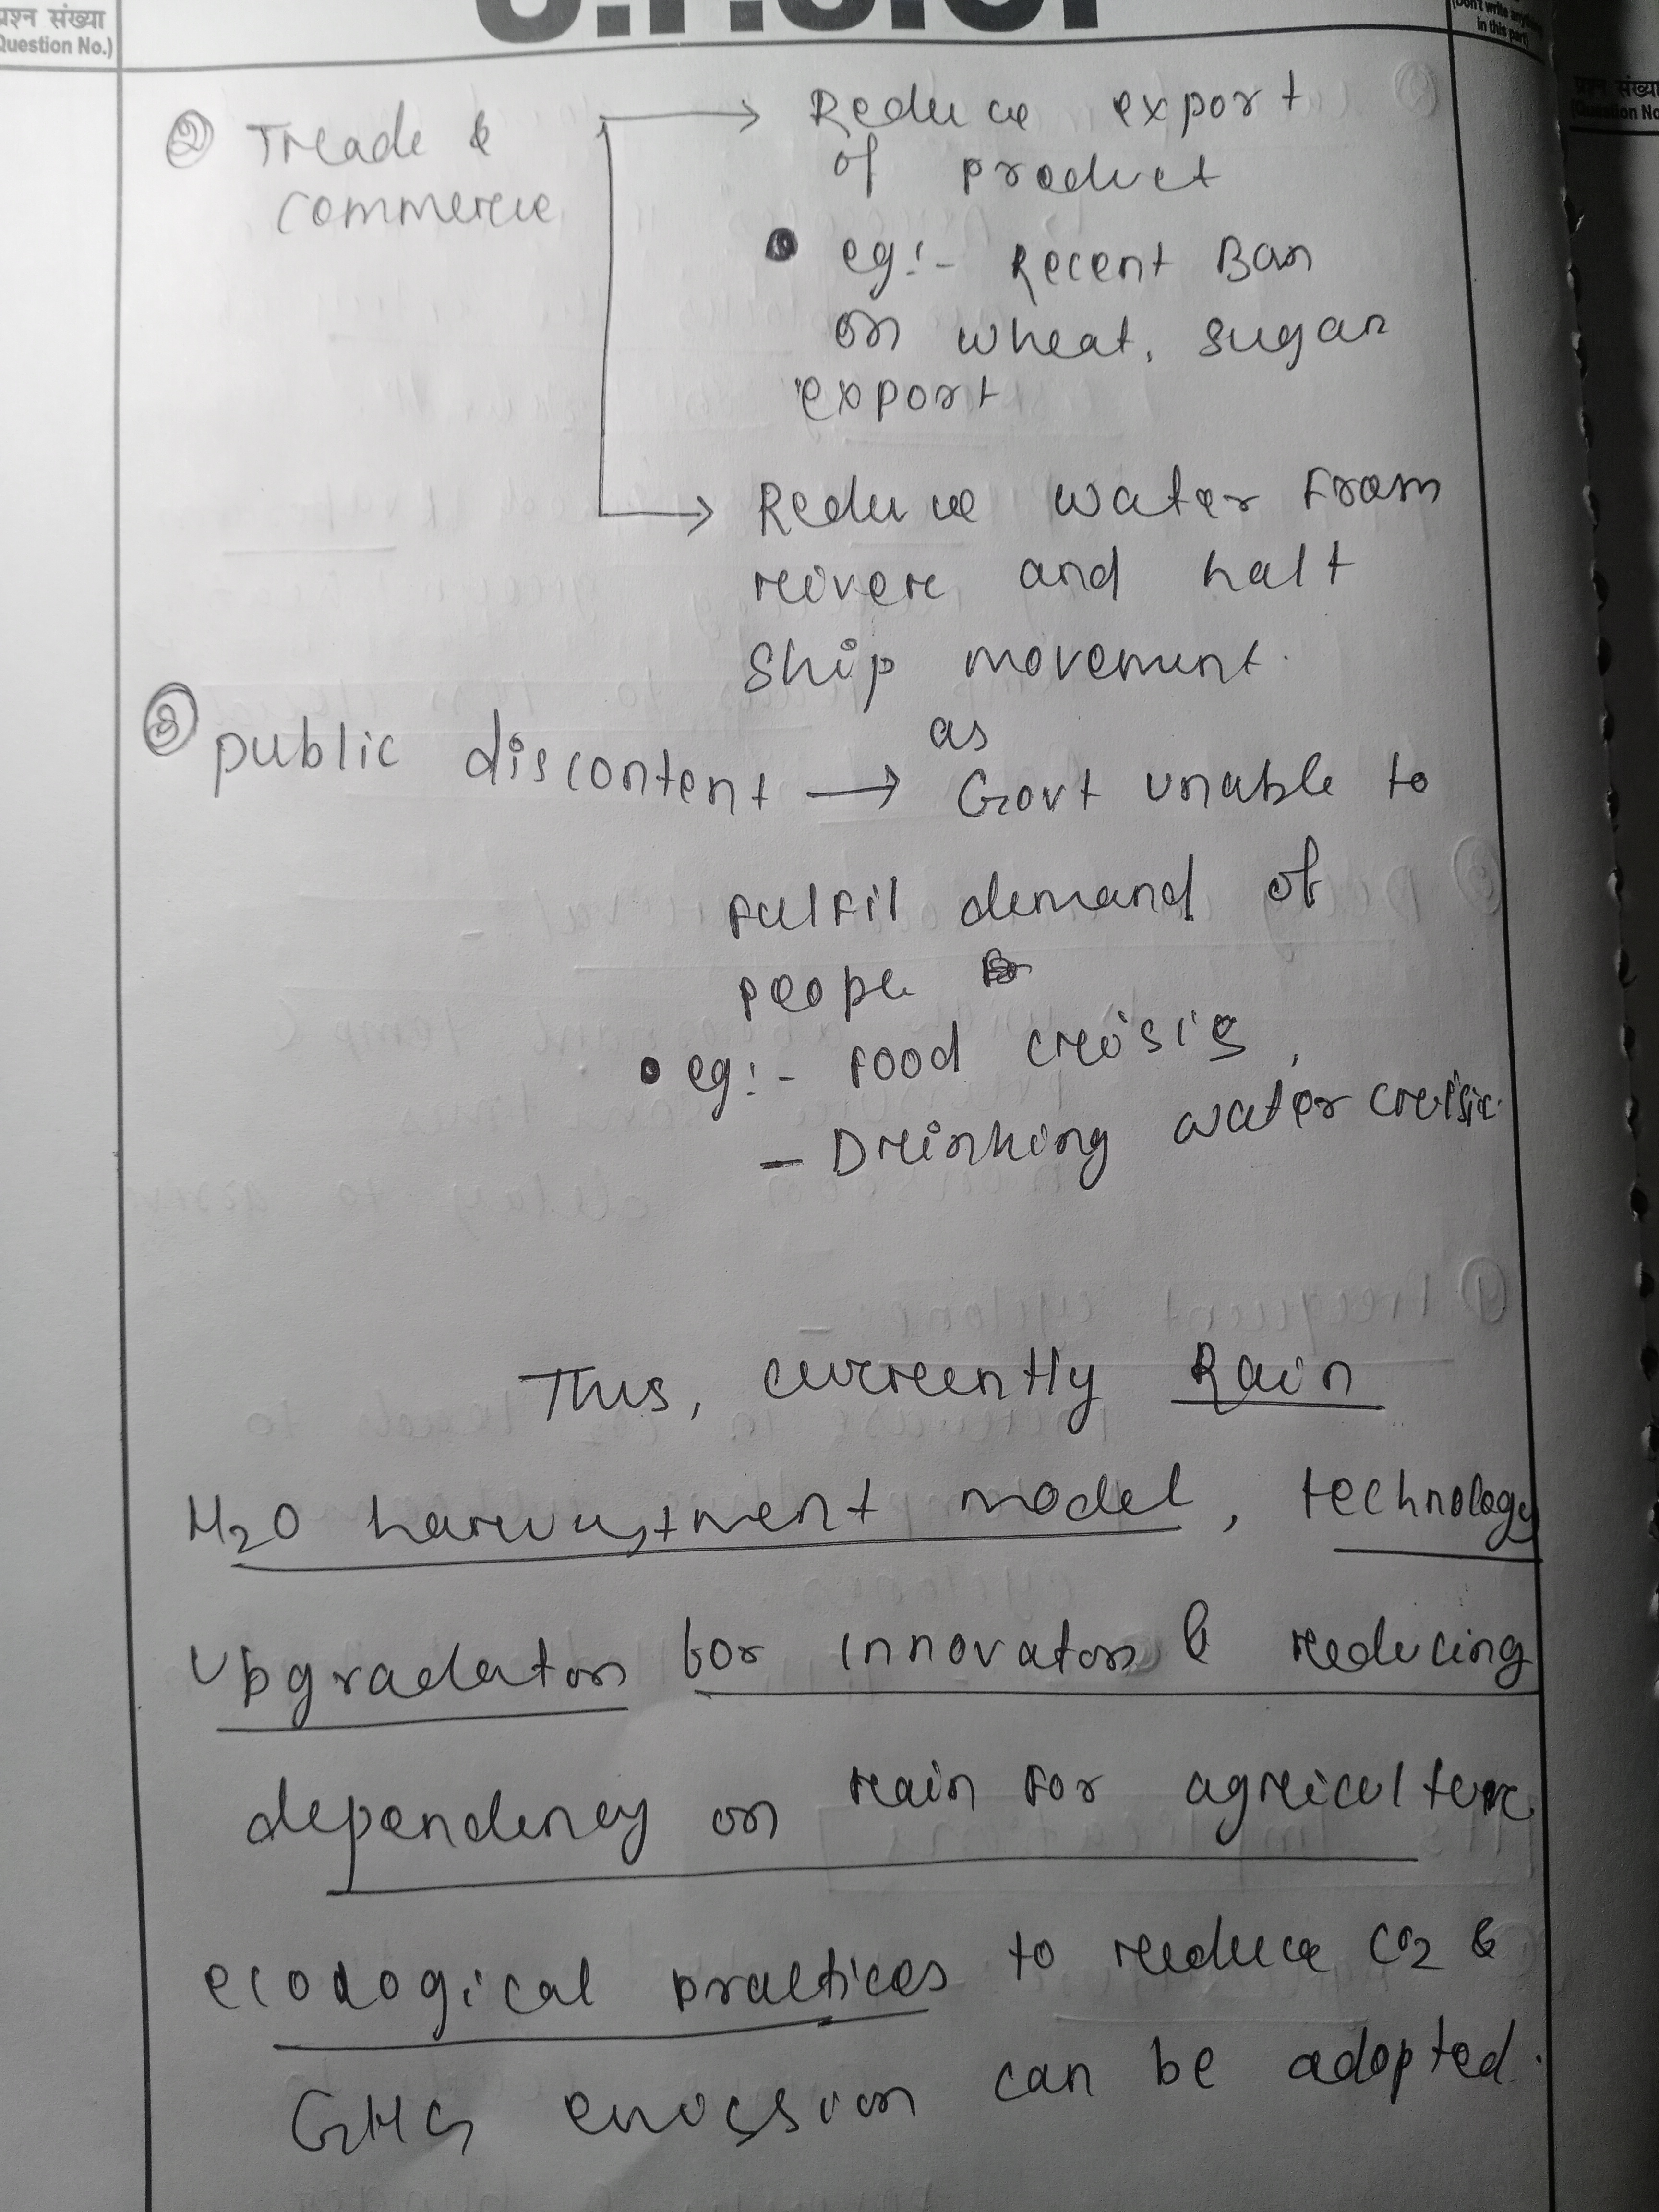 प्रश्न संख्या
Question No.)
U.P.S.C.
(Don't write anything
in this part)
प्रश्न संख्या
(Question No
② Treade &
commerce
→ Reduce export
of product
• eg:- Recent Ban
on wheat, sugar
export
→ Reduce water from
reiver and halt
ship movement.
③ public discontent → as Govt unable to
fulfil demand of
people
• eg:- food creisis,
- Dreinking water creisis.
Thus, currently Rain
H2O harvestment model, technology
upgradation for innovation & reducing
dependency on rain for agreiculture
ecological practices to reduce CO2 &
GHG emission can be adopted.